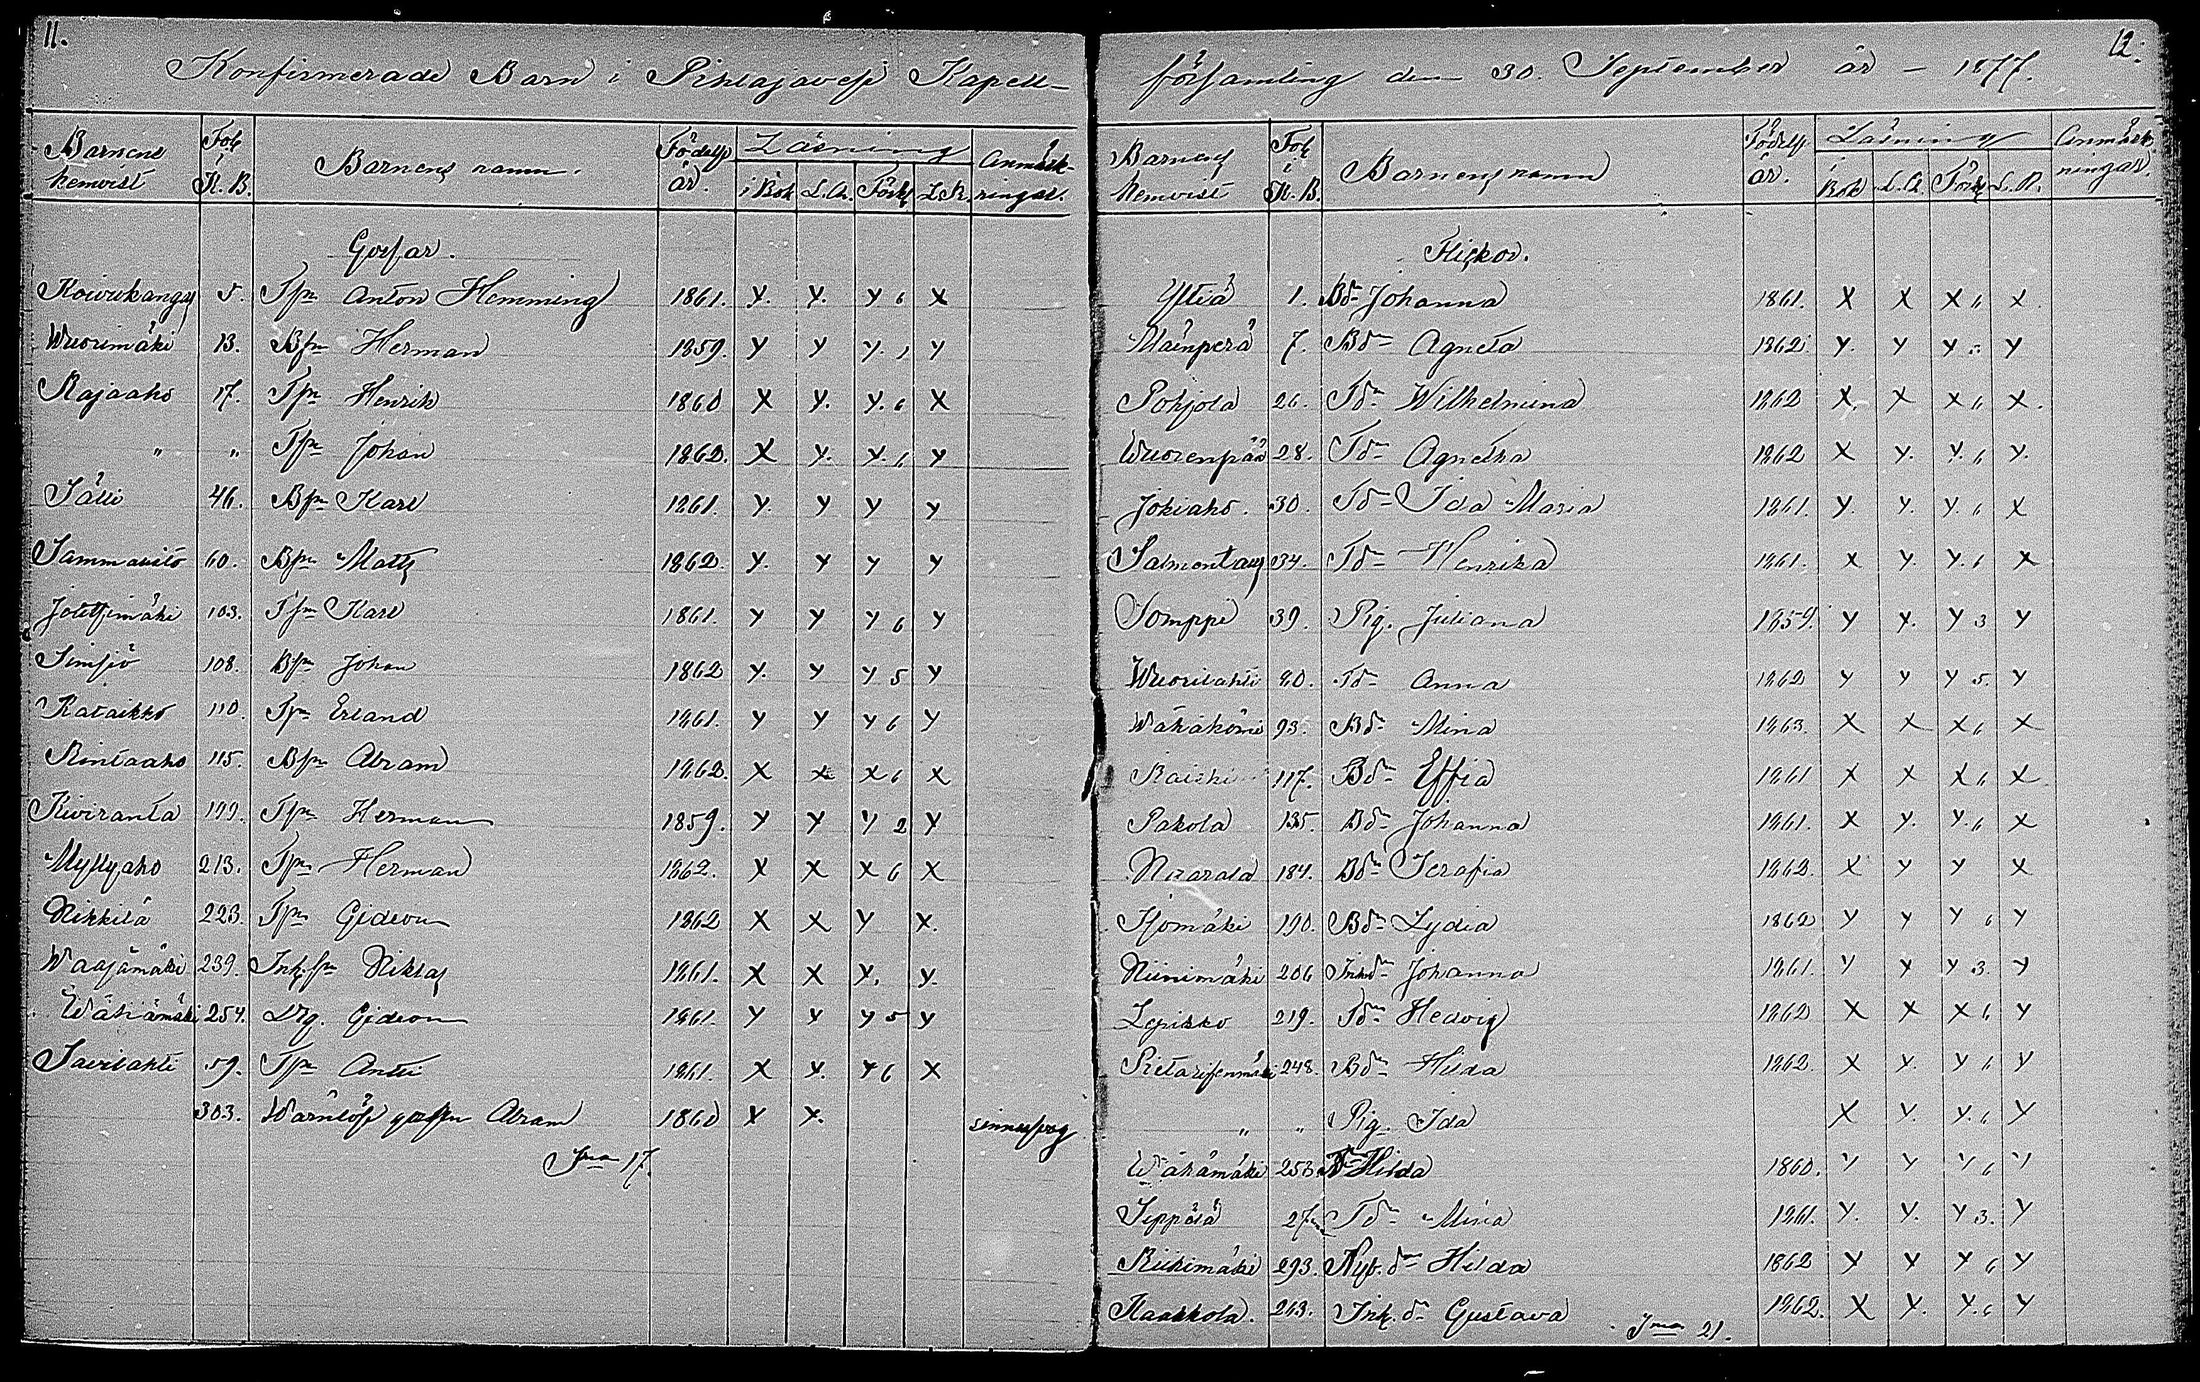 11.
Konfirmerade Barn i Pihlajavesi Kapell-
Barnens hemvist | Fol i K. B. | Barnens namn. | Födelse år. | Läsning i Bok | L.A. | Förkl | L.K. | Anmärkningar.
Gossar.
Koivukangas 5. Tsn Anton Hemming 1861. Y. Y. Y 6 X
Wuorimäki 13. Bsn Herman 1859. Y Y Y. 1 Y
Rajaaho 17. Tsn Henrik 1860 X Y. Y. 6 X
" " Tsn Johan 1862. X Y. Y. 6 Y
Sälli 46. Bsn Karl 1861. Y. Y Y Y
Sammalisto 60. Bsn Matts 1862. Y. Y Y Y
103. Tsn Karl 1861. Y Y Y 6 Y
Sinisjö 108. Bsn Johan 1862 Y. Y Y 5 Y
Kataikko 110. Tsn Erland 1861. Y Y Y 6 Y
Rintaaho 115. Bsn Abram 1862. X X X 6 X
Kiviranta 199. Tsn Herman 1859. Y Y Y 2 Y
Myllyaho 213. Tsn Herman 1862. X X X 6 X
Nikkilä 223. Tsn Gideon 1862 X X Y X.
Waajamäki 239. Inh. sn Niklas 1861. X X Y. Y.
Wähämäki 254. Drg. Gideon 1861. Y Y Y 5 Y
Savilahti 59. Tsn Antti 1861. X Y. Y 6 X
303. Wärnlös gossen Abram 1860 X X. sinnessvag
Sma 17.
12.
församling den 30. September år - 1877.
Barnens hemvist | Fol i K. B. | Barnens namn | Födelse år. | Läsning i Bok | L.A. | Förkl | L.K. | Anmärkningar.
Flickor.
Ylliä 1. Bdr Johanna 1861. X X X 6 X
Mäinperä 7. Bdr Agneta 1862. Y. Y Y 5. Y
Pohjola 26. Tdr Wilhelmina 1862 X. X X 6 X.
Wuorenpää 28. Tdr Agnetha 1862 X Y. Y. 6 Y.
Jokiaho. 30. Tdr Ida Maria 1861. Y. Y. Y. 6 X
Salmentaus 34. Tdr Henrika 1861. X Y. Y. 6 X
Somppi 39. Pig. Juliana 1859. Y Y. Y 3 Y
Wuorilahti 80. Tdr Anna 1862 Y Y Y 5. Y
93. Bdr Mina 1863. X X X 6 X
Raiski 117. Bdr Effia 1861 X X X 6 X
Pakola 135. Bdr Johanna 1861. X Y. Y. 6 X
184. Bdr Serafia 1862. X Y Y X
Isomäki 190. Bdr Lydia 1862 Y Y Y 6 Y
Niinimäki 206 Inh. dr Johanna 1861. Y Y Y 3. Y
Lepikko 219. Tdr Hedvig 1862 X X X 6 Y
Rietarisenmäki 248. Bdr Hilda 1862. X Y. Y 6 Y
" " Pig. Ida X Y. Y. 6 Y
Wähämäki 253. Tdr Hilda 1860. Y Y Y 6 Y
Seppälä Tdr Mina 1861. Y. Y. Y 3. Y
Riihimäki 293. Nyb. dr Hilda 1862 Y Y Y 6 Y
Haakkola. 263. Inh. dr Gustava 1862. X Y. Y. 6 Y
Sma 21.